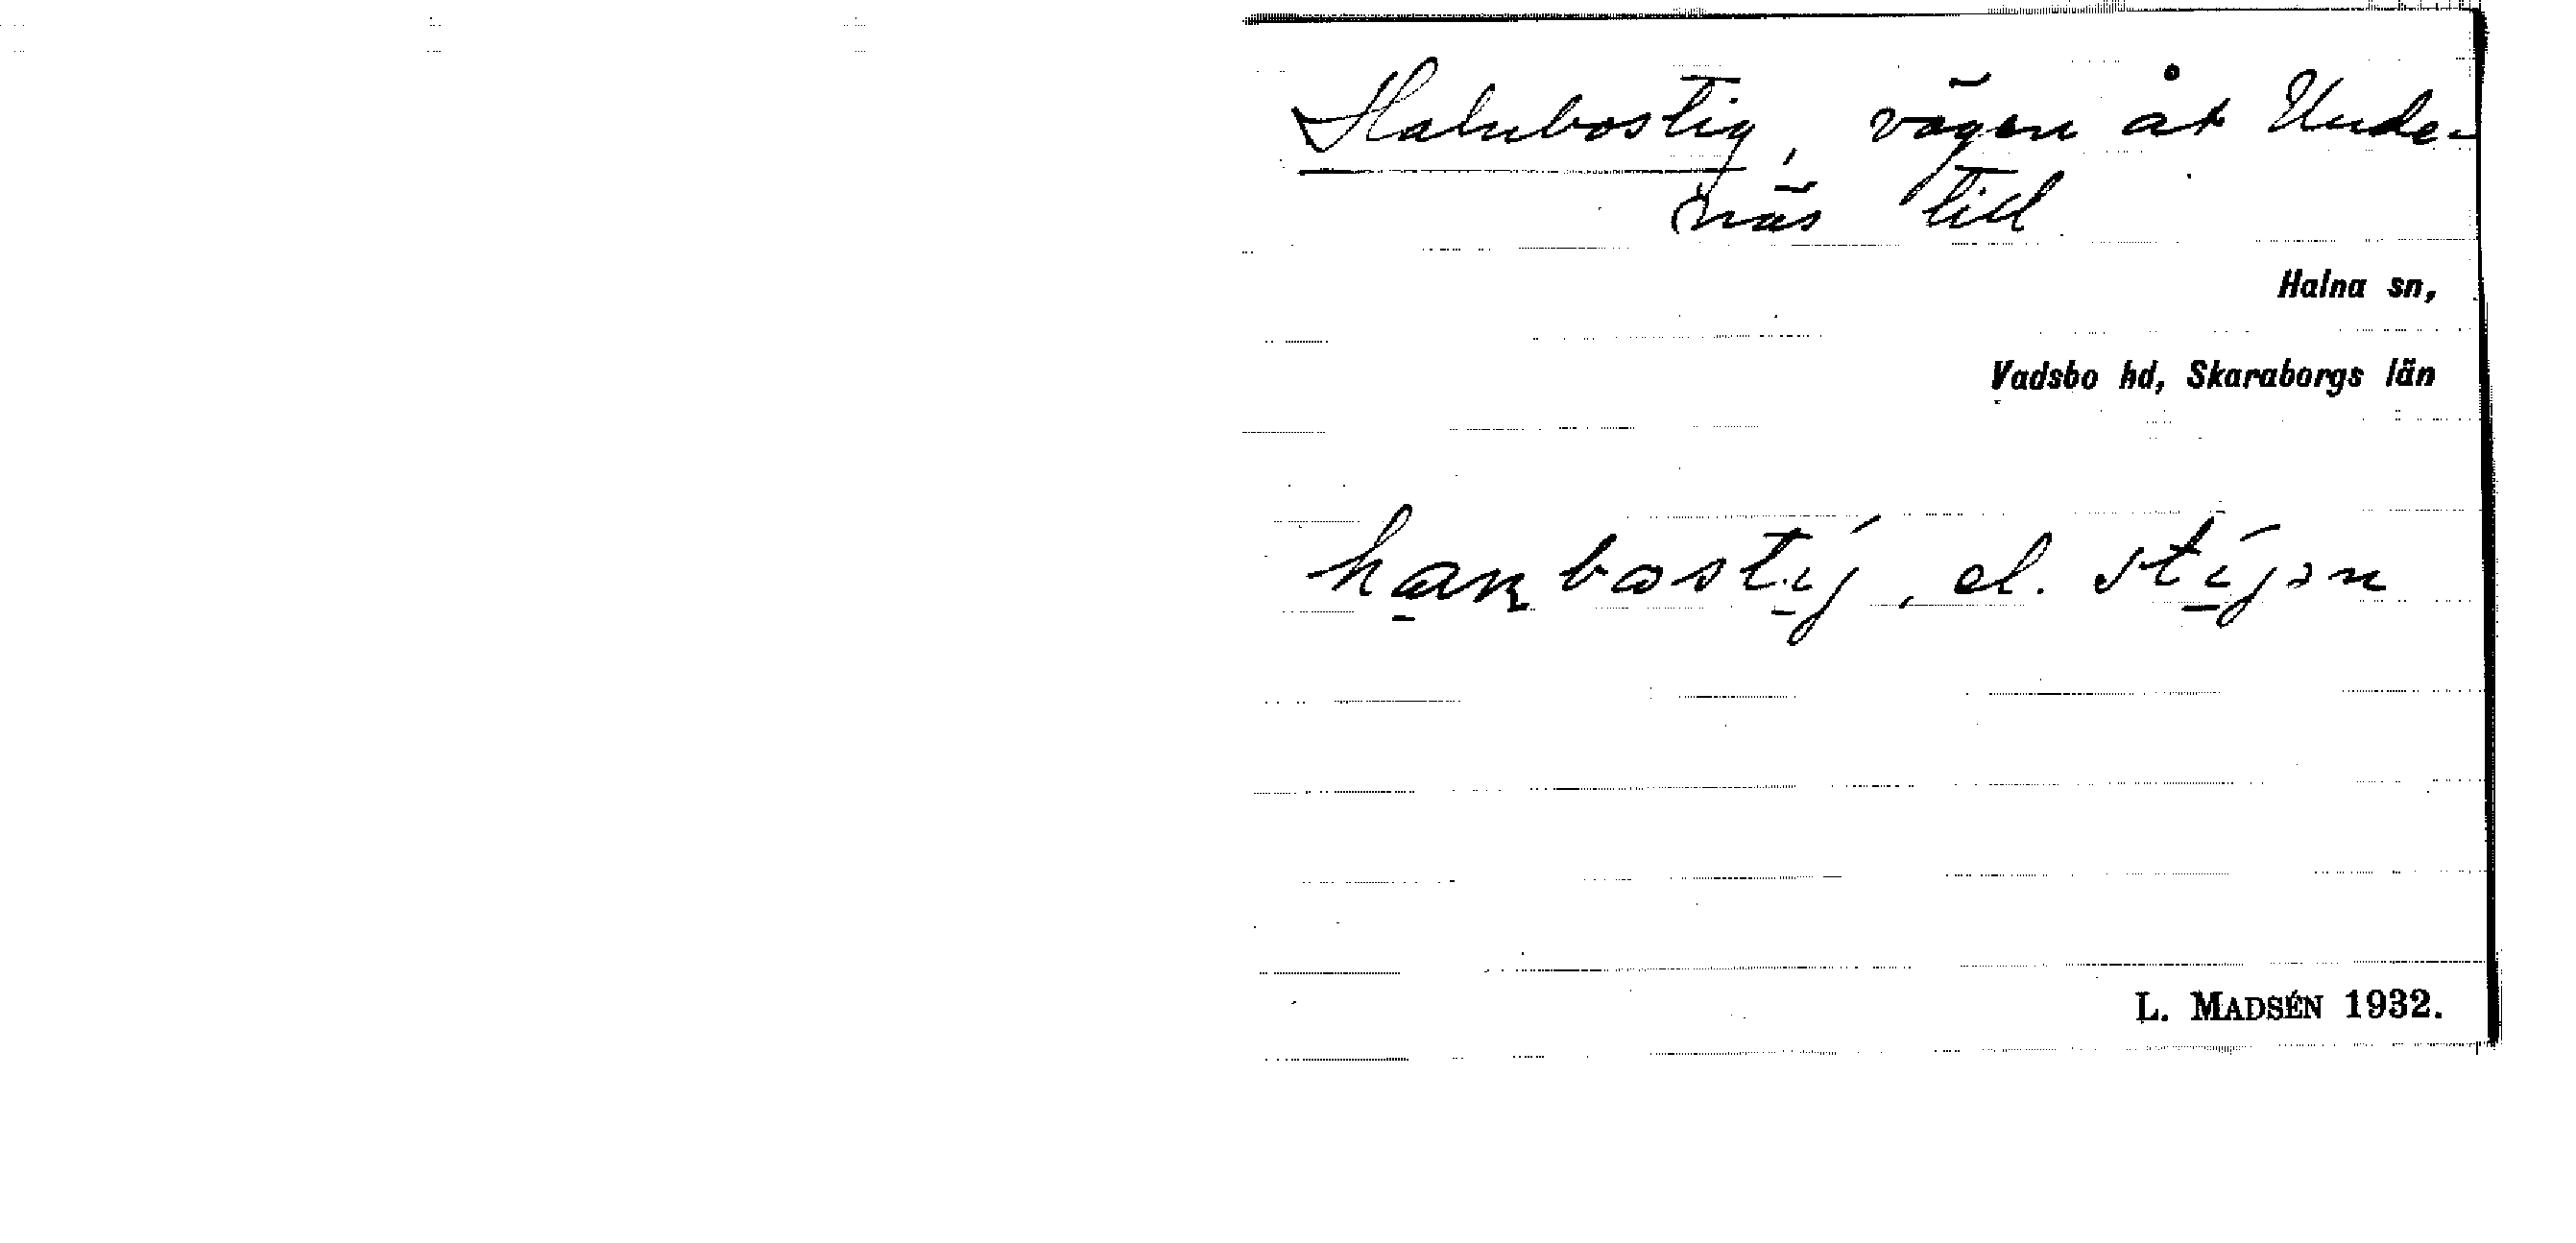 Halnbostig, vägen åt Unde-
näs till
Halna sn,
Vadsbo hd, Skaraborgs län
el.
L. MADSÉN 1932.